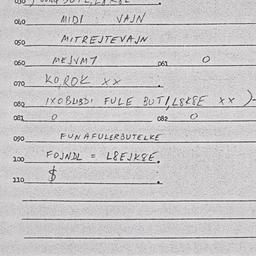 040 MIDI VAJN
050 MITREJTEVAJN
060 MEJVM7 061 0
070 KO, ROK XX
080 FULE BUT/L8K8E XX )-
081 0 082 0
090 FUNAFULERBUTELKE
100 FOJNDL = L8EJK8E.
110 $ .